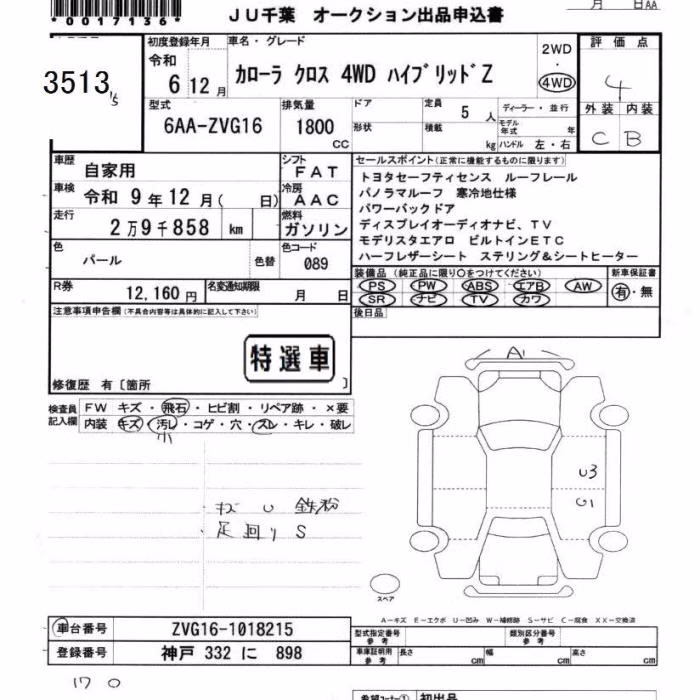 *0017136*
JU千葉 オークション出品申込書
月 日AA
3513
初度登録年月
令和
6 12 月
車名・グレード
カローラ クロス 4WD ハイブリッドZ
2WD
・
4WD
評価点
4
外装 内装
C B
型式
6AA-ZVG16
排気量
1800 CC
ドア
形状
定員 5 人
積載 kg
ディーラー・並行
モデル年式 年
ハンドル 左・右
車歴 自家用
車検 令和 9年 12月( 日)
走行 2万9千858 km
色 パール 色替
シフト FAT
冷房 AAC
燃料 ガソリン
色コード 089
セールスポイント(正常に機能するものに限ります)
トヨタセーフティセンス ルーフレール
パノラマルーフ 寒冷地仕様
パワーバックドア
ディスプレイオーディオナビ、TV
モデリスタエアロ ビルトインETC
ハーフレザーシート ステリング&シートヒーター
R券 12,160円
名変通知期限 月 日
装備品(純正品に限り○をつけてください)
PS PW ABS エアB AW
SR ナビ TV カワ
新車保証書
有・無
後日品
注意事項申告欄(不具合内容等は具体的に記入して下さい)
特選車
修復歴 有〔箇所 〕
検査員記入欄
FW キズ・飛石・ヒビ割・リペア跡・×要
内装 キズ・汚レ・コゲ・穴・スレ・キレ・破レ
小
・キズ U 鉄粉
・足回り S
A
U3
G1
スペア
A-キズ E-エクボ U-凹み W-補修跡 S-サビ C-腐食 XX-交換済
車台番号 ZVG16-1018215
登録番号 神戸 332 に 898
型式指定番号 参考
類別区分番号 参考
車庫証明用 参考
長さ cm 幅 cm 高さ cm
17 0
希望コーナー① 初出品